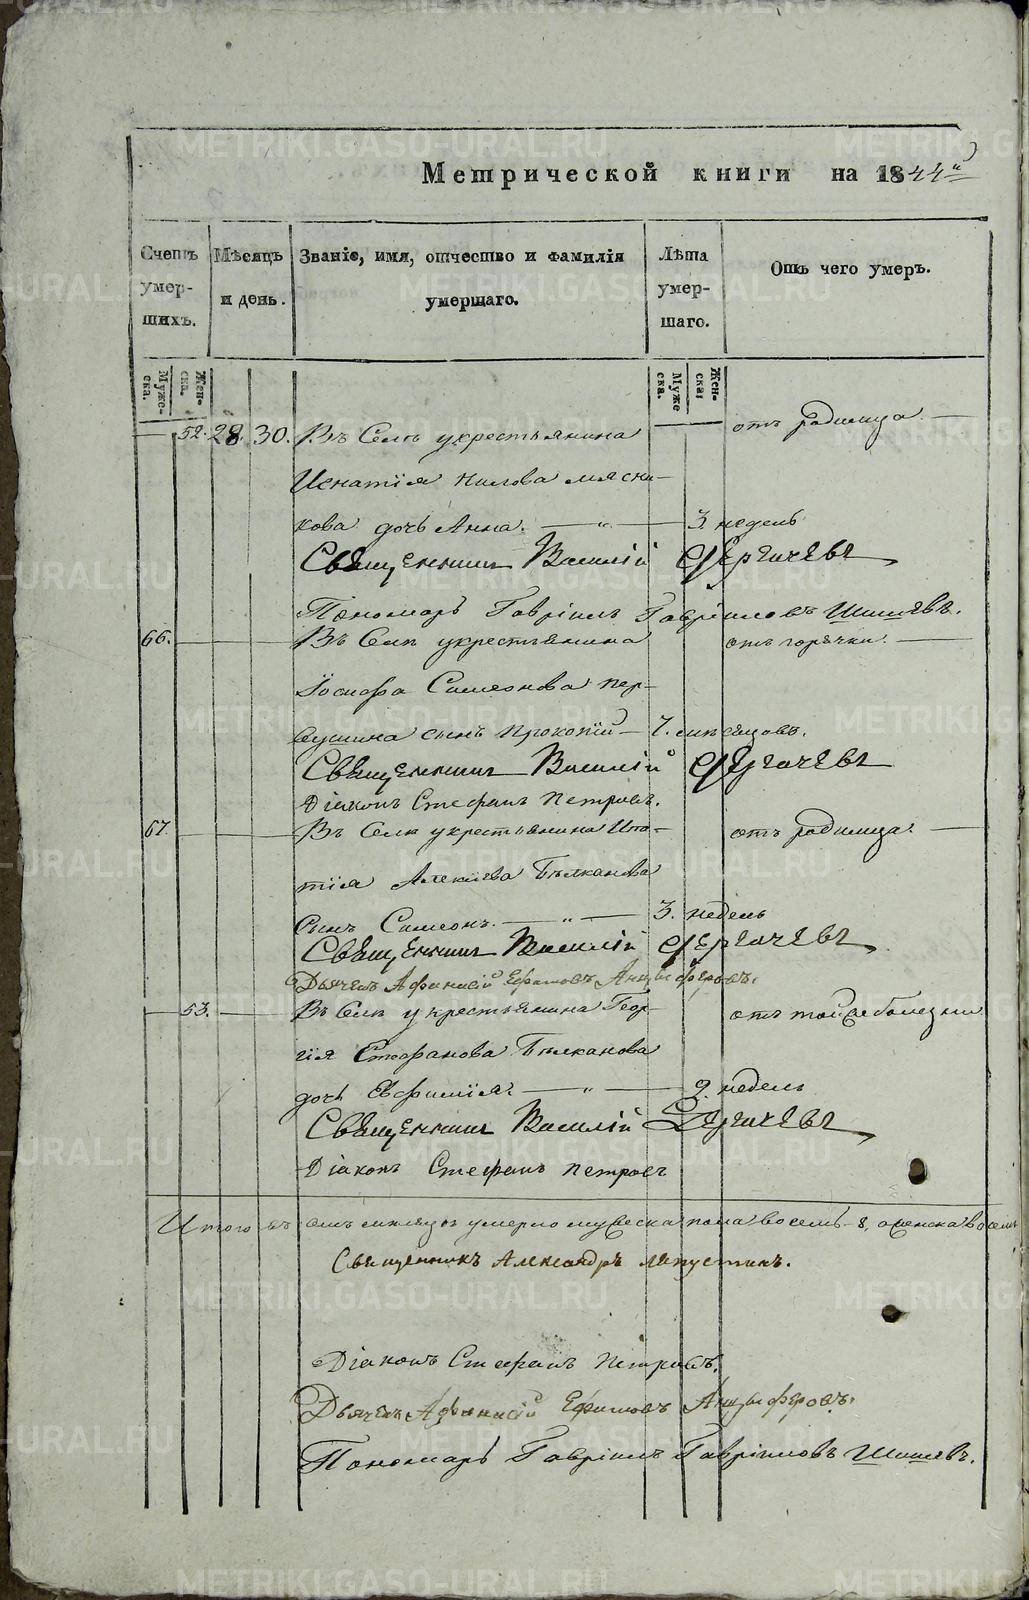 Метрической книги на 1844й
Счетъ умершихъ.
Мѣсяцъ и день.
Званіе, имя, отчество и фамилія умершаго.
Лѣта умершаго.
Отъ чего умеръ.
Мужеска.
Женска.
Муже ска.
Женска:
52. 28. 30. Въ Селѣ у крестьянина отъ родимца.
Игнатія Нилова Мясни-
кова дочь Анна. 3. недель
Священникъ Василій Дергачевъ
Пономарь Гавріилъ Гавріиловъ Шишевъ.
66. Въ Селѣ у крестьянина отъ горячки.
Іосифа Симеонова Пер-
вушина сынъ Прокопій 7. мѣсяцовъ.
Священникъ Василій Дергачевъ
Діаконъ Стефанъ Петровъ.
67. Въ Селѣ у крестьянина Ипа- отъ родимца.
тія Алексіева Бѣлканова
сынъ Симеонъ. 3. недель
Священникъ Василій Дергачевъ
Дьячекъ Афанасій Ефимовъ Анцыферовъ.
53. Въ Селѣ у крестьянина Геор- отъ той же болезни
гія Стефанова Бѣлканова
дочь Евфимія. 2. недель
Священникъ Василій Дергачевъ
Діаконъ Стефанъ Петровъ
Итого въ омъ мѣсяцѣ умерло мужеска пола восемь 8, а женска восемь
Священникъ Александръ Ляпустинъ.
Діаконъ Стефанъ Петровъ.
Дьячекъ Афанасій Ефимовъ Анцыферовъ.
Пономарь Гавріилъ Гавріиловъ Шишевъ.
METRIKI.GASO-URAL.RU